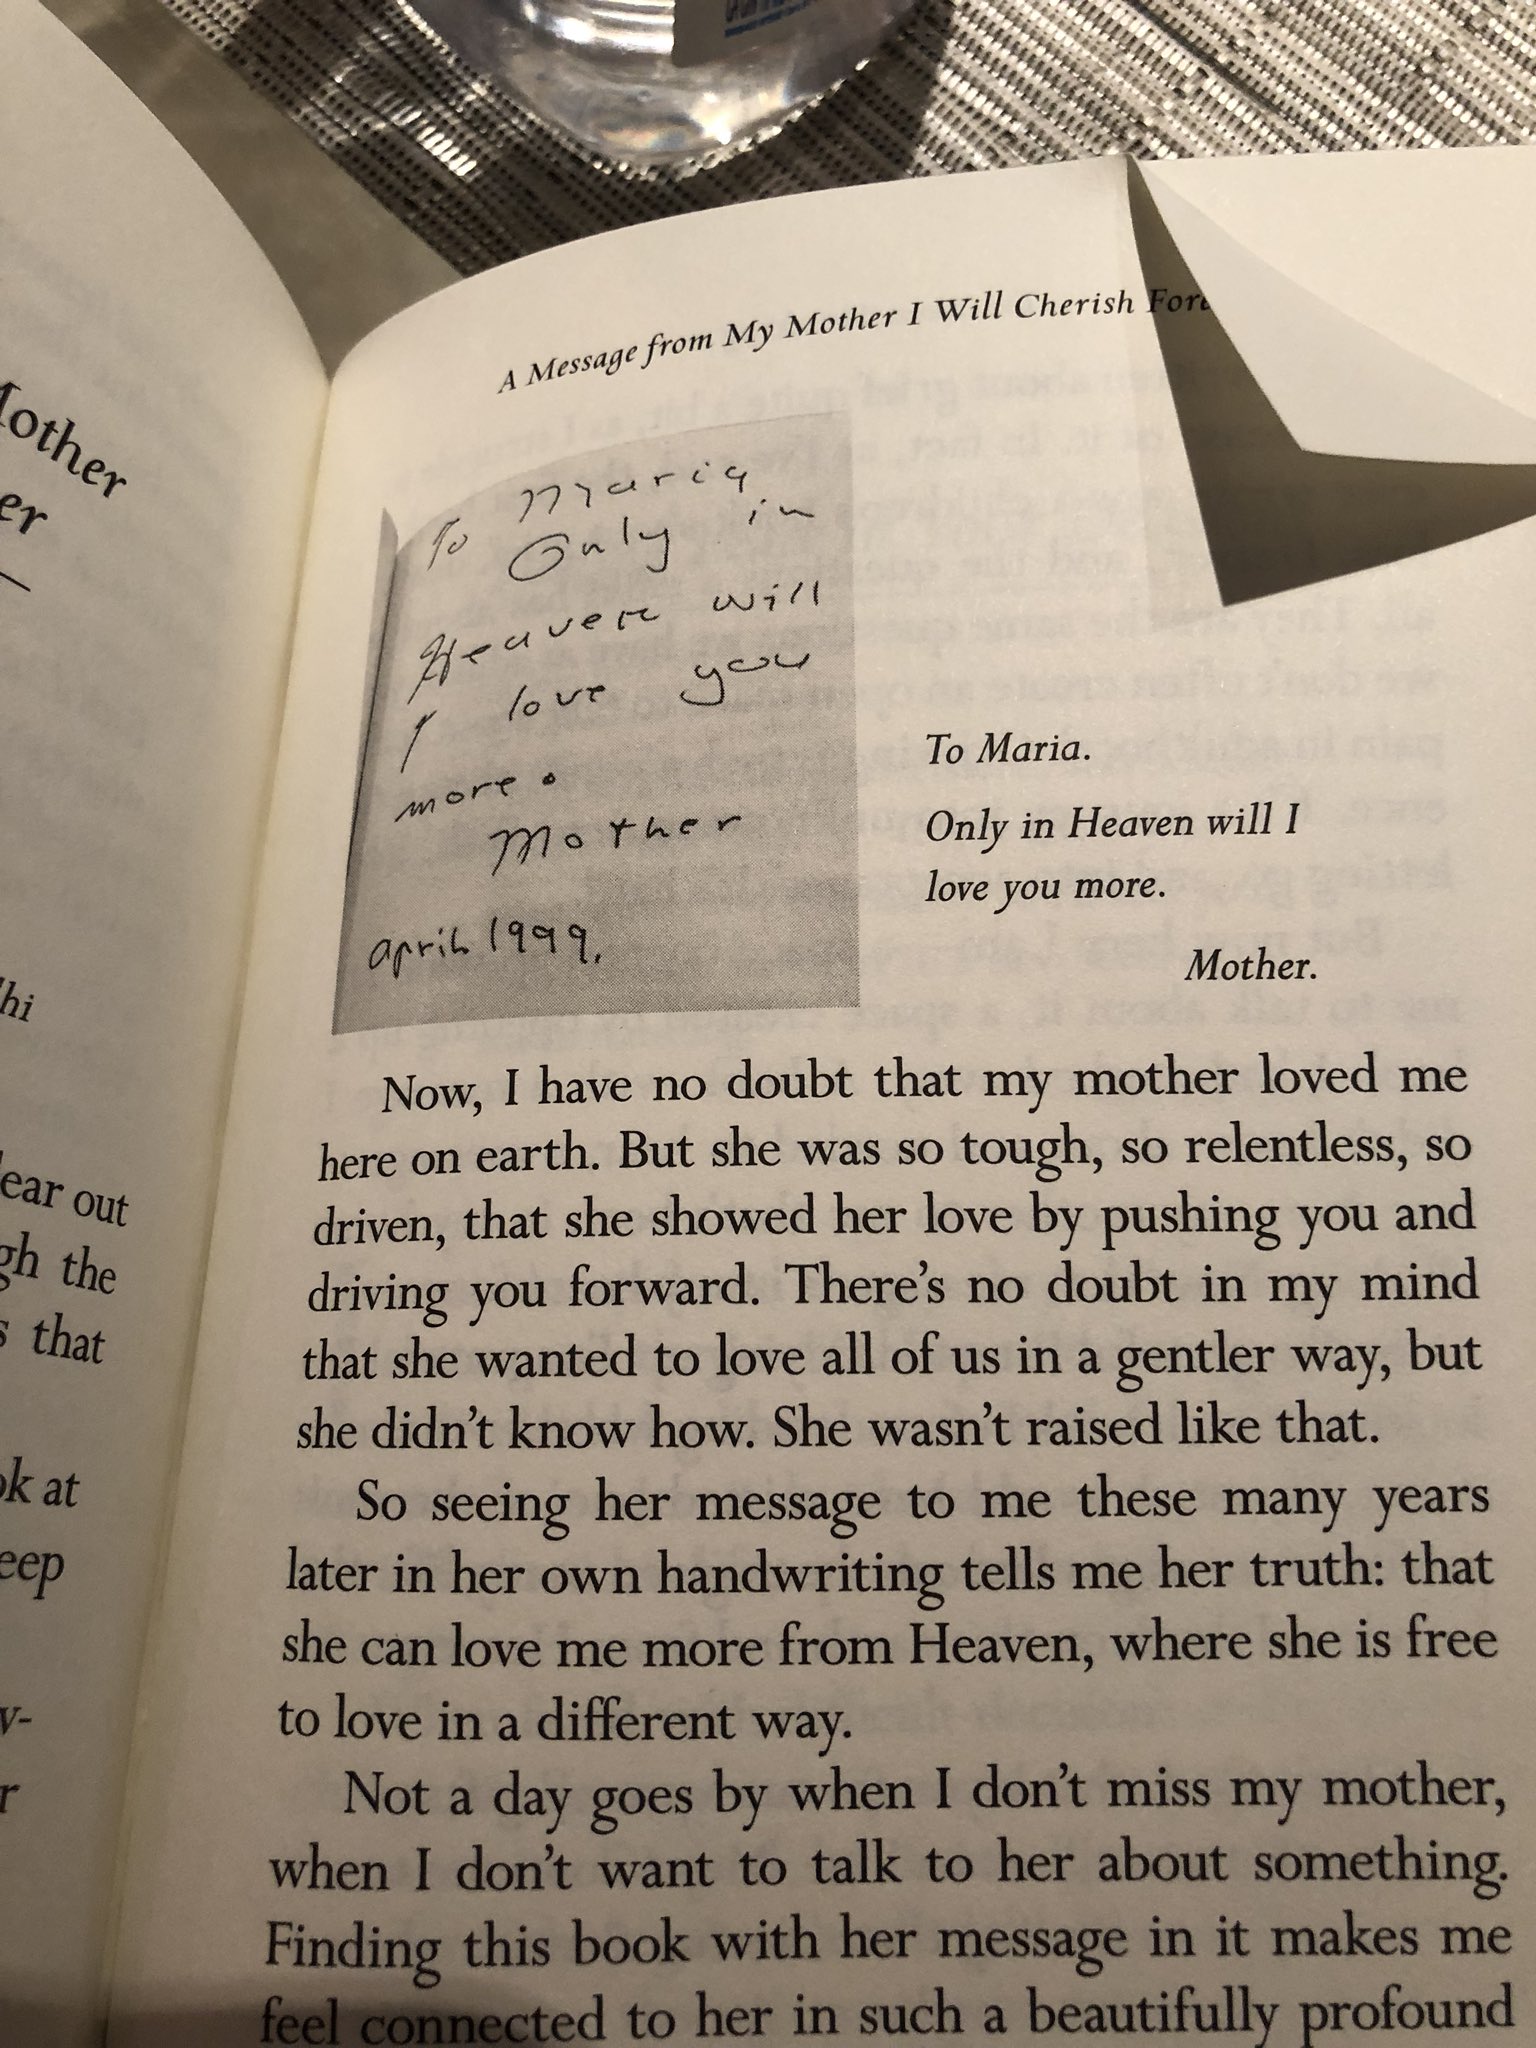 Mother
er
hi
ear out
gh the
s that
ok at
eep
w-
r
A Message from My Mother I Will Cherish
To Maria
Only in
Heaven will
I love you
more.
Mother
april 1999.
To Maria.
Only in Heaven will I
love you more.
Mother.
Now, I have no doubt that my mother loved me
here on earth. But she was so tough, so relentless, so
driven, that she showed her love by pushing you and
driving you forward. There's no doubt in my mind
that she wanted to love all of us in a gentler way, but
she didn't know how. She wasn't raised like that.
So seeing her message to me these many years
later in her own handwriting tells me her truth: that
she can love me more from Heaven, where she is free
to love in a different way.
Not a day goes by when I don't miss my mother,
when I don't want to talk to her about something.
Finding this book with her message in it makes me
feel connected to her in such a beautifully profound